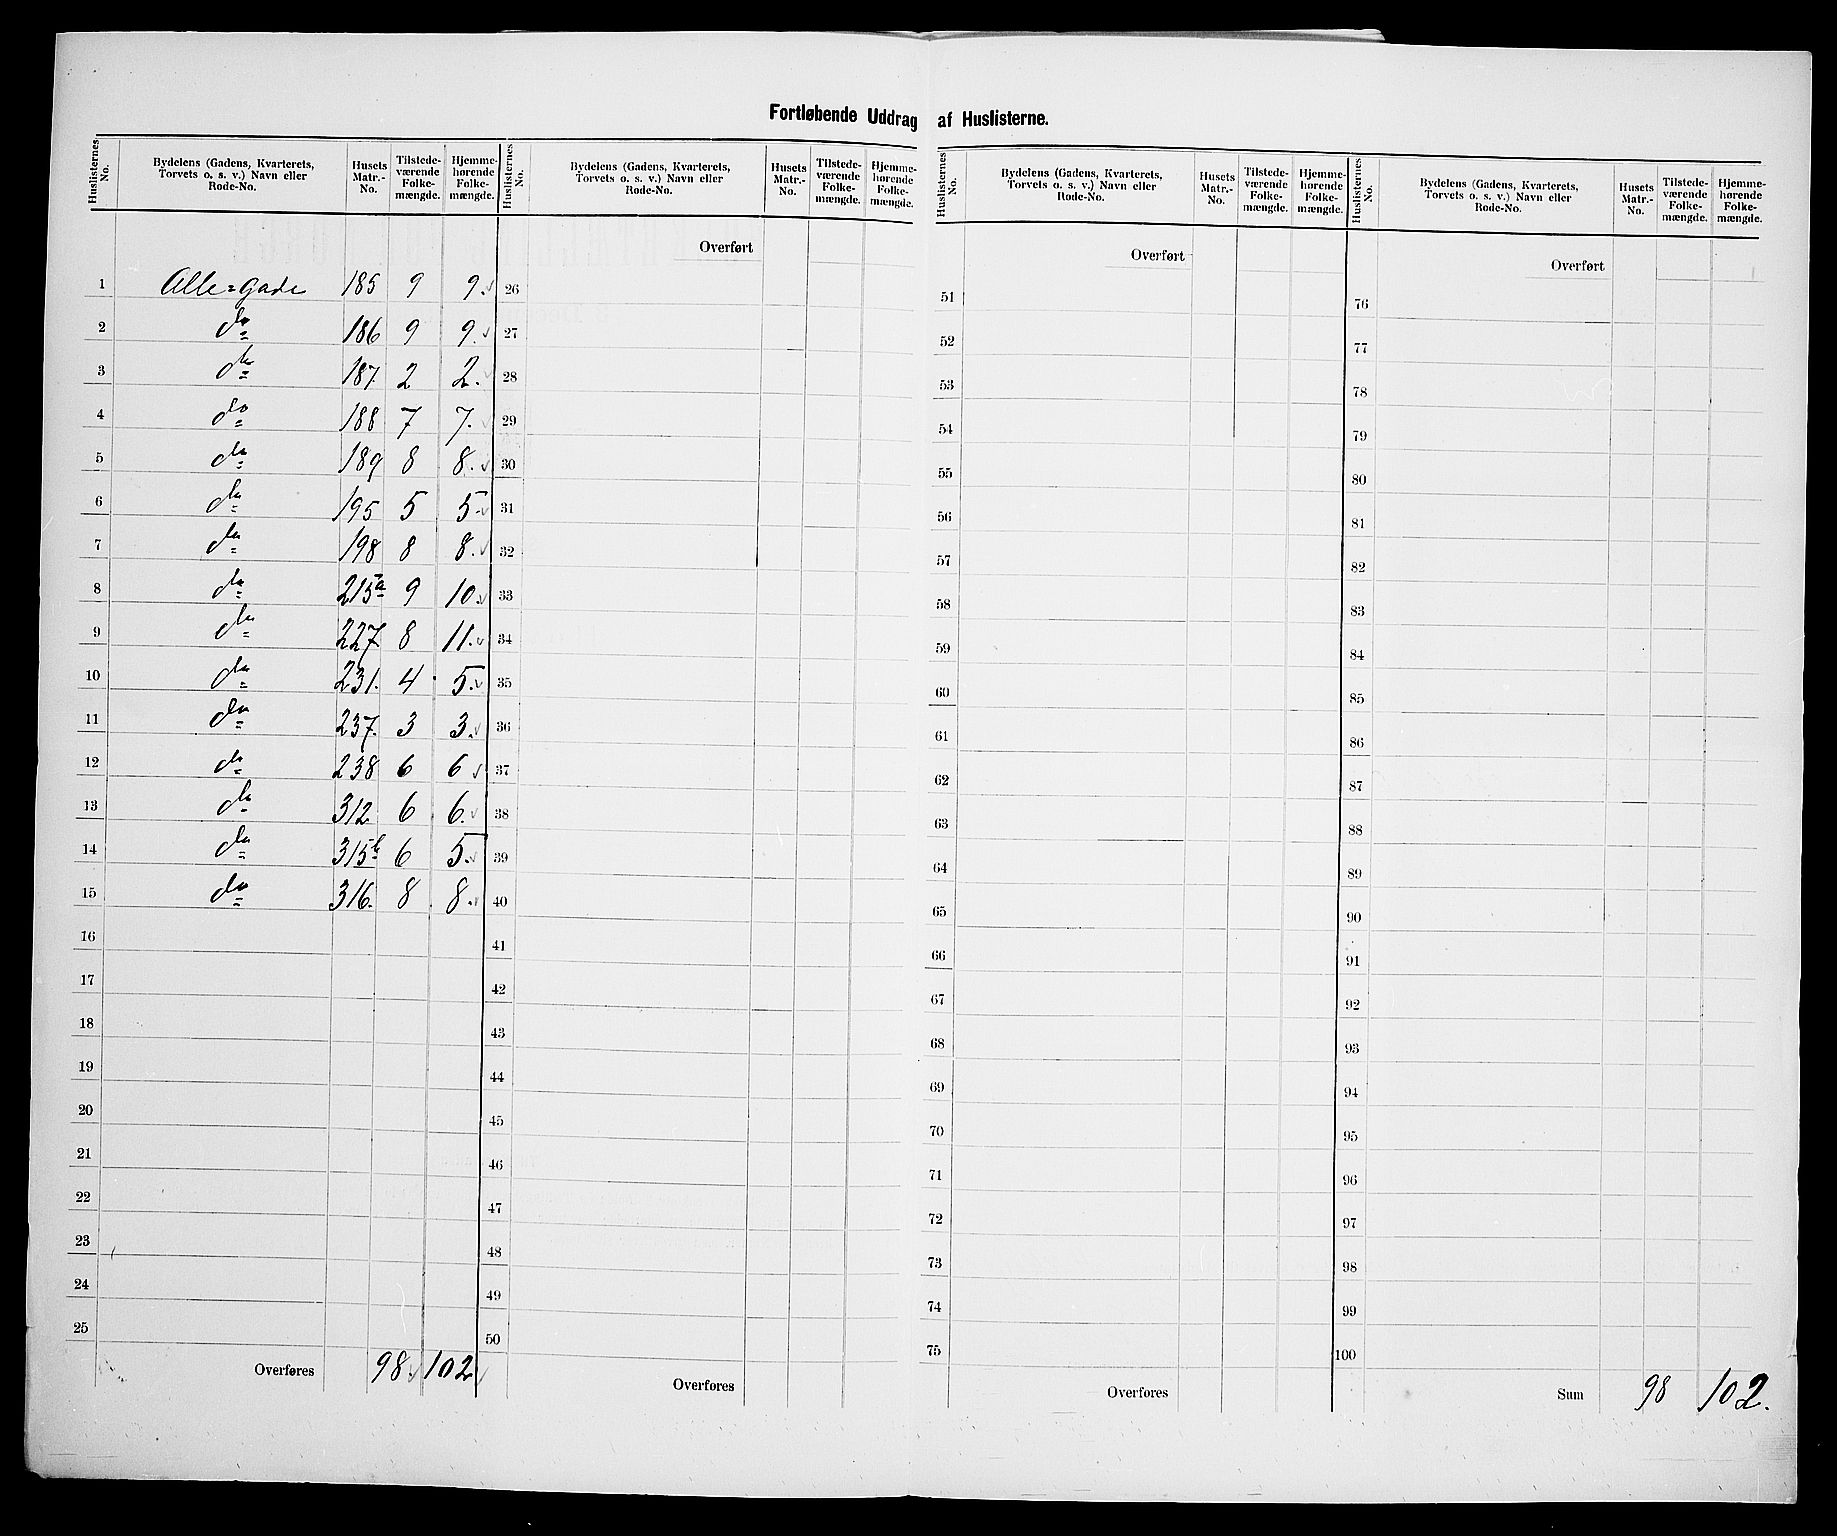 Fortløbende Uddrag af Huslisterne.
Huslisternes No. | Bydelens (Gadens, Kvarterets, Torvets o. s. v.) Navn eller Rode-No. | Husets Matr.-No. | Tilstede-værende Folke-mængde. | Hjemme-hørende Folke-mængde.
1 Alle=Gade 185 9 9.
2 do 186 9 9.
3 do 187. 2 2.
4 do 188 7 7.
5 do 189 8 8.
6 do 195 5 5.
7 do 198 8 8.
8 do 215a 9 10.
9 do 227. 8 11.
10 do 231. 4 5.
11 do 237. 3 3.
12 do 238 6 6
13 do 312 6 6.
14 do 315b 6 5.
15 do 316. 8 8.
16
17
18
19
20
21
22
23
24
25
Overføres 98. 102
Huslisternes No. | Bydelens (Gadens, Kvarterets, Torvets o. s. v.) Navn eller Rode-No. | Husets Matr.-No. | Tilstede-værende Folke-mængde. | Hjemme-hørende Folke-mængde.
Overført
26
27
28
29
30
31
32
33
34
35
36
37
38
39
40
41
42
43
44
45
46
47
48
49
50
Overføres
Huslisternes No. | Bydelens (Gadens, Kvarterets, Torvets o. s. v.) Navn eller Rode-No. | Husets Matr.-No. | Tilstede-værende Folke-mængde. | Hjemme-hørende Folke-mængde.
Overført
51
52
53
54
55
56
57
58
59
60
61
62
63
64
65
66
67
68
69
70
71
72
73
74
75
Overføres
Huslisternes No. | Bydelens (Gadens, Kvarterets, Torvets o. s. v.) Navn eller Rode-No. | Husets Matr.-No. | Tilstede-værende Folke-mængde. | Hjemme-hørende Folke-mængde.
Overført
76
77
78
79
80
81
82
83
84
85
86
87
88
89
90
91
92
93
94
95
96
97
98
99
100
Sum 98 102.